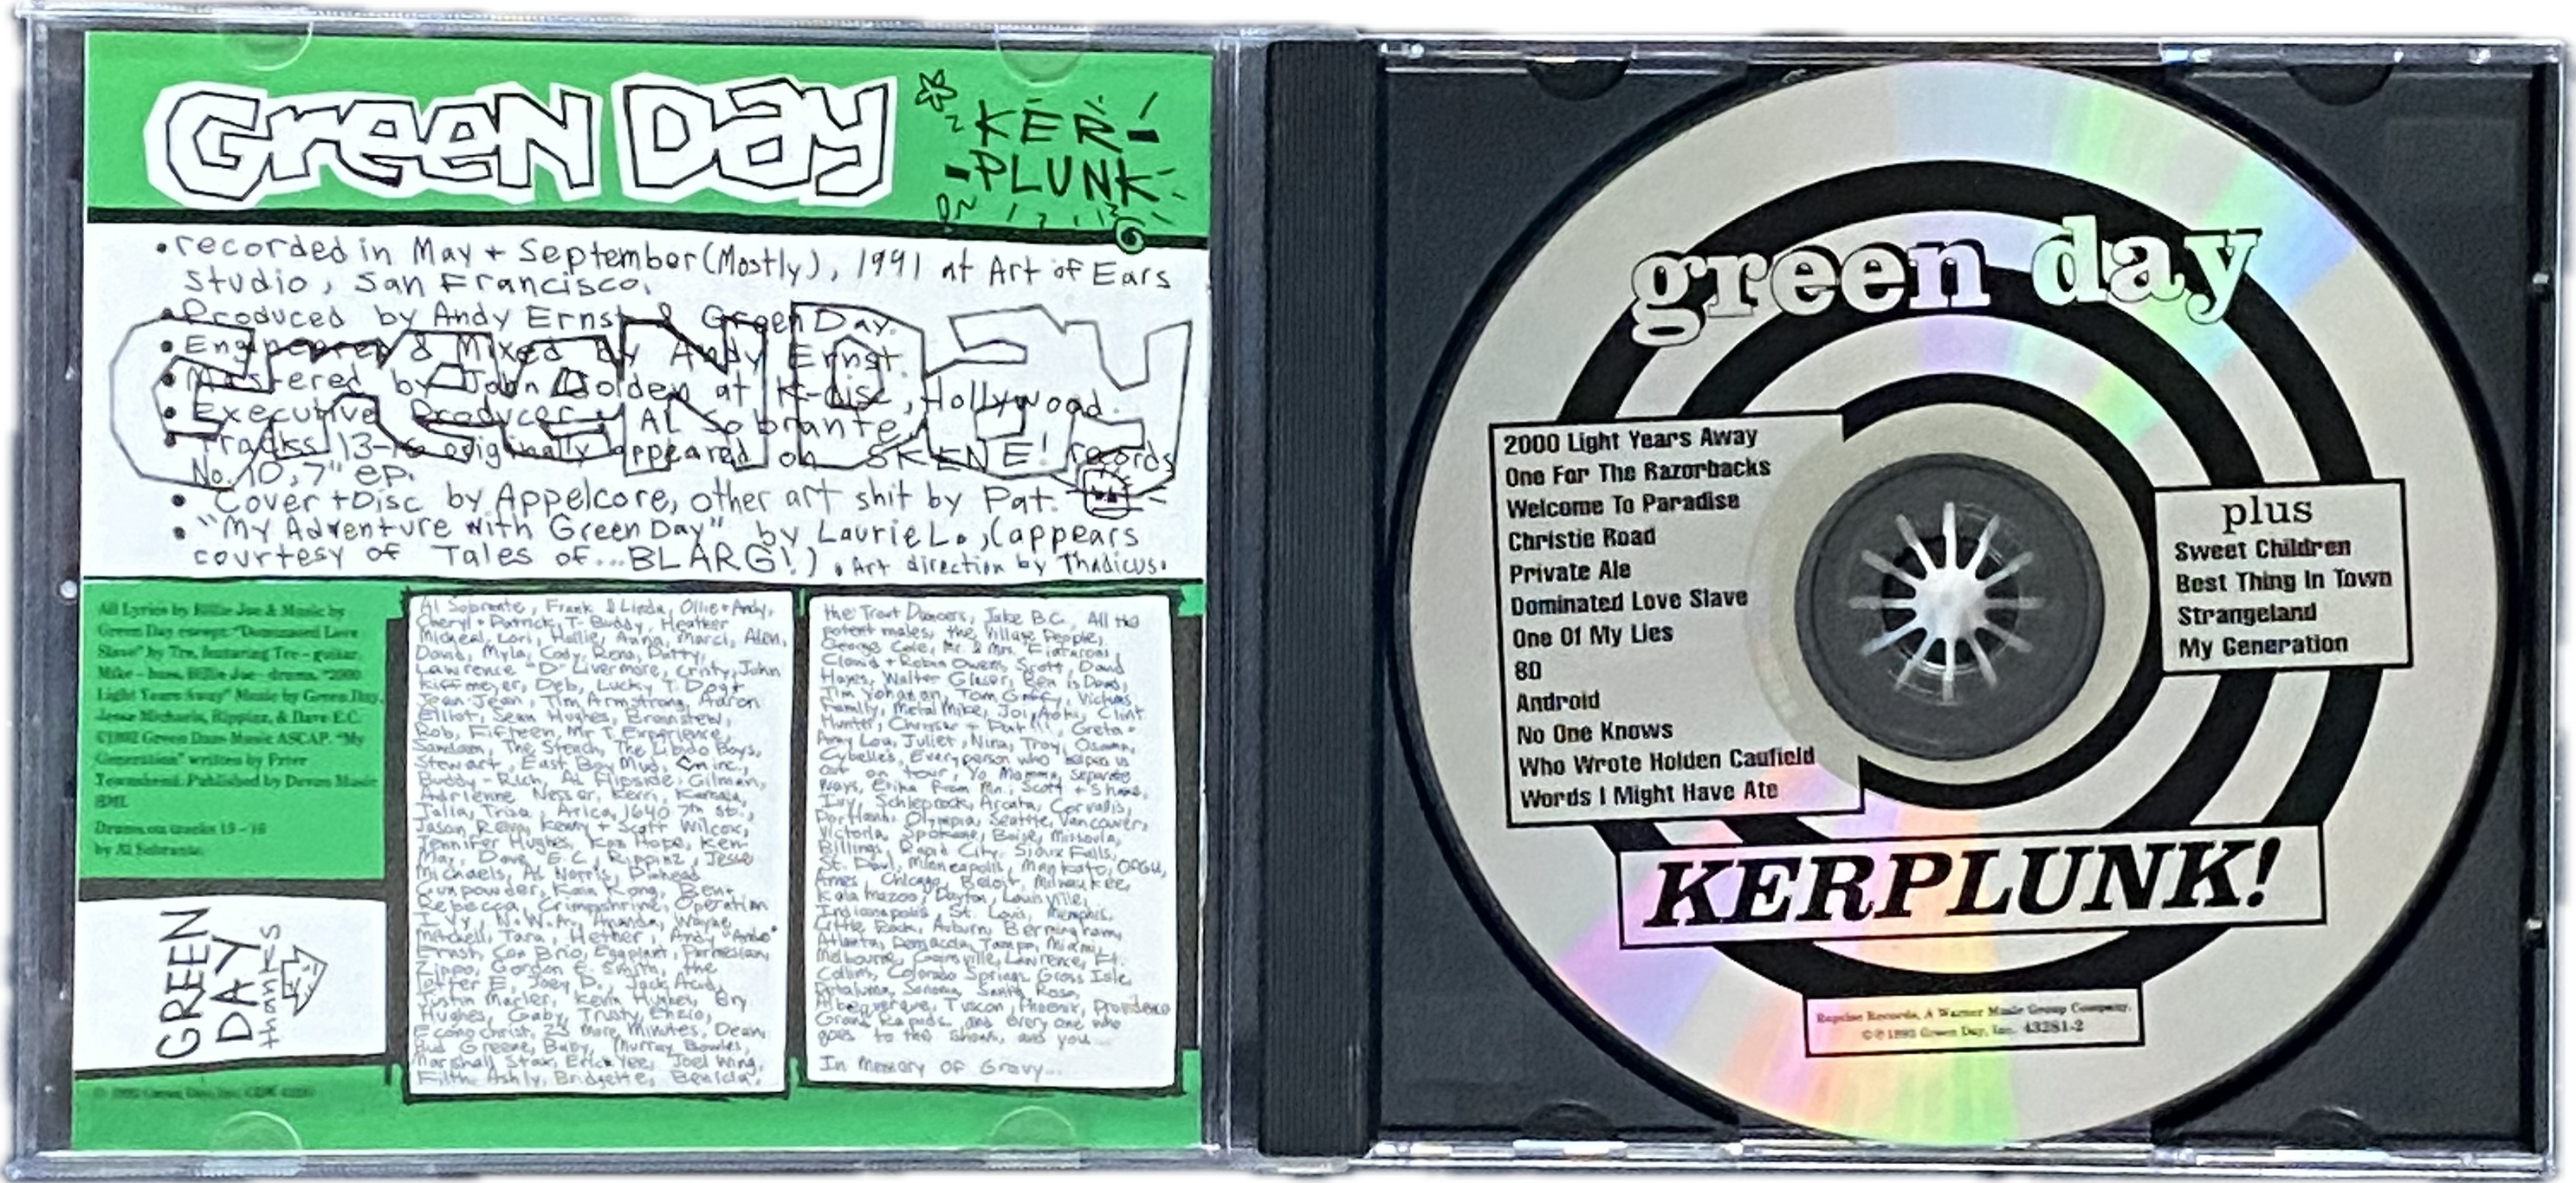 Green Day
KER-
-PLUNK
• recorded in May + September (Mostly), 1991 at Art of Ears
studio, San Francisco.
• Produced by Andy Ernst & Green Day.
• Engineered & Mixed by Andy Ernst.
• Mastered by John Golden at K-disc, Hollywood.
• Executive Producer - AL Sobrante
• Tracks 13-16 originally appeared on SKENE! records
No. 10, 7" ep.
• Cover + Disc by Appelcore, other art shit by Pat.
• "My Adventure with Green Day" by Laurie L., (appears
courtesy of Tales of...BLARG!) . Art direction by Thadicus.
Green Day
All Lyrics by Billie Joe & Music by
Green Day except: "Dominated Love
Slave" by Tre, featuring Tre - guitar,
Mike - bass, Billie Joe - drums. "2000
Light Years Away" Music by Green Day,
Jesse Michaels, Rippinz, & Dave E.C.
©1992 Green Daze Music ASCAP. "My
Generation" written by Peter
Townshend. Published by Devon Music
BMI.
Drums on tracks 13 - 16
by Al Sobrante.
GREEN
DAY
thanks
Al Sobrante, Frank & Linda, Ollie + Andy,
Cheryl + Patrick, T-Buddy, Heather
Micheal, Lori, Hollie, Anna, Marci, Alen,
David, Myla, Cody, Rena, Patty,
Lawrence "D" Livermore, Cristy, John
Kiffmeyer, Deb, Lucky T. Dog +
Sean, Jean, Tim Armstrong, Aaron
Elliot, Sean Hughes, Brainstew,
Rob, Fifteen, Mr T. Experience,
Samiam, The Steach, The Libido Boys,
Stewart, East Bay Mud, Cninc,
Buddy-Rich, Al Flipside, Gilman,
Adrienne Nesser, Kerri,
Julia, Trisa, Arica, 1640 7th St.,
Jason Reva, Kenny + Scott Wilcox,
Jennifer Hughes, Kan Hope, Ken
May, Dave E.C., Rippinz, Jesse
Michaels, Al Norris, Pinhead
Gunpowder, Kain Kong, Bent
Rebecca, Crimpshrine, Operation
Ivy, N.W.A., Amanda, Wayne,
Mitchell, Tara, Hether, Andy "Ando"
Ernst, Con Brio, Eggplant, Parmesian,
Zippo, Gordon E. Smith, the
Lotter E, Joey D., Jack Acid,
Justin Marler, Kevin Hughes, Bry
Hughes, Gaby, Trusty, Enzio,
Econochrist, 23 More Minutes, Dean,
Bud Greene, Baby, Murray Bowles,
Marshall Stax, Erick Yee, Joel Wing,
Filth, Ashly, Bridgette, Benicia,
the Trout Dancers, Jake B.C., All the
potent males, the Village People,
George Cole, Mr. & Mrs. Fiatarone,
Cloud + Robin Owens, Scott, David
Hayes, Walter Glaser, Ben is Dead,
Tim Yohanan, Tom Goff, Vickies
Family, Metal Mike, Joi, Aoki, Clint
Hunter, Chrysse + Pat!!!, Greta +
Amy Lou, Juliet, Nina, Troy, Osama,
Cybelle's, Every person who helped us
out on tour, Yo Momma, Separate
Ways, Erika from Mn., Scott + Shane,
Ivy, Schleprock, Arcata, Corvalis,
Portland, Olympia, Seattle, Vancouver,
Victoria, Spokane, Boise, Missoula,
Billings, Rapid City, Sioux Falls,
St. Paul, Minneapolis, Mankato,
Ames, Chicago, Beloit, Milwaukee,
Kalamazoo, Dayton, Louisville,
Indianapolis, St. Louis, Memphis,
Little Rock, Auburn, Bermingham,
Atlanta, Pensacola, Tampa, Miami,
Melbourne, Gainsville, Lawrence, Ft.
Collins, Colorado Springs, Gross Isle,
Petaluma, Sonoma, Santa Rosa,
Alberquerque, Tuscon, Phoenix, Providence
Grand Rapids and every one who
goes to the shows, and you...
In Memory of Gravy...
green day
2000 Light Years Away
One For The Razorbacks
Welcome To Paradise
Christie Road
Private Ale
Dominated Love Slave
One Of My Lies
80
Android
No One Knows
Who Wrote Holden Caufield
Words I Might Have Ate
plus
Sweet Children
Best Thing In Town
Strangeland
My Generation
KERPLUNK!
Reprise Records, A Warner Music Group Company.
©℗1992 Green Day, Inc. 43281-2